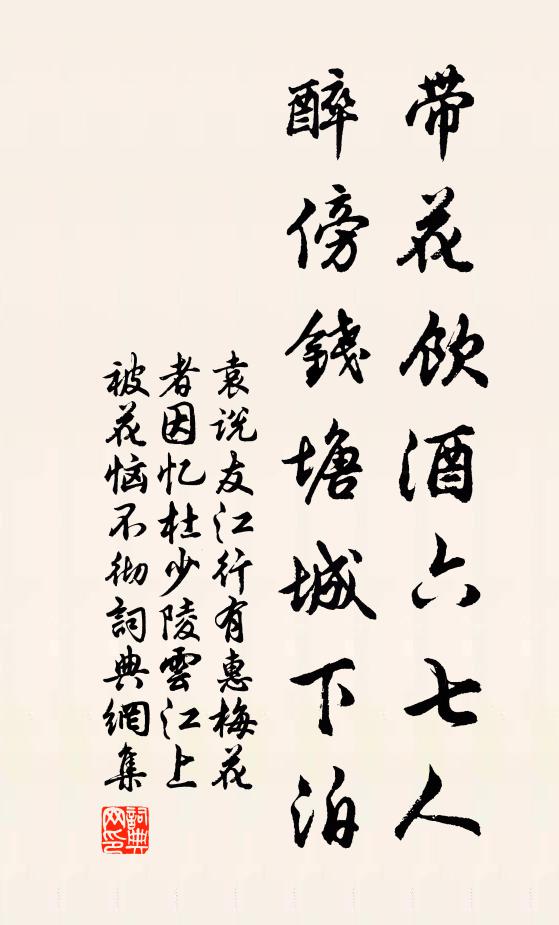 带花饮酒六七人
醉傍錢塘城下泊
袁说友江行有惠梅花
者因忆杜少陵雲江上
被花恼不彻詞典網集
詞典
网印